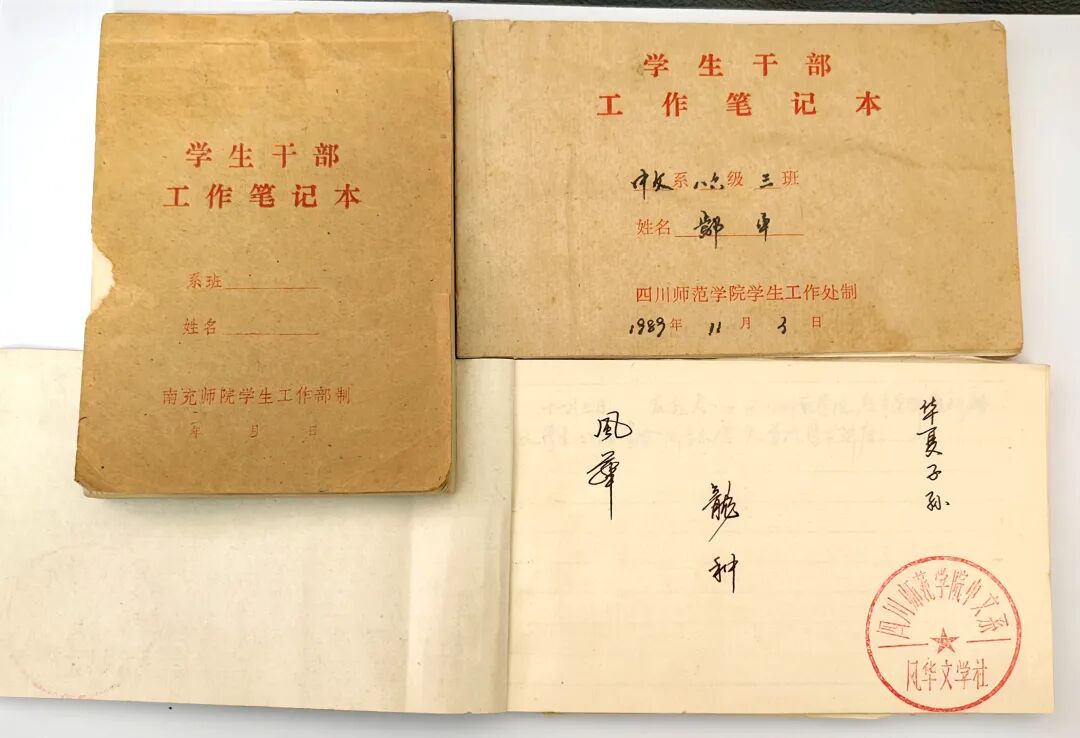 学生干部
工作笔记本
系班
姓名
南充师院学生工作部制
年 月 日
学生干部
工作笔记本
中文系八六级三班
姓名 鄢平
四川师范学院学生工作处制
1989年11月3日
華夏子孙
龍种
風華
四川师范学院中文系
风华文学社